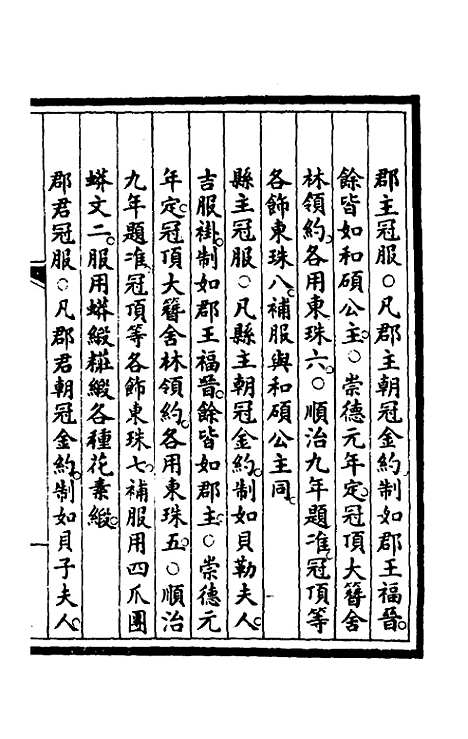 郡主冠服○凡郡主朝冠金約制如郡王福晉。
餘皆如和碩公主。○崇德元年定冠頂大簪舍
林領約。各用東珠六。○順治九年題准冠頂等
各飾東珠八。補服與和碩公主同。
縣主冠服○凡縣主朝冠金約。制如貝勒夫人。
吉服褂。制如郡王福晉。餘皆如郡主。○崇德元
年定。冠頂大簪舍林領約。各用東珠五。○順治
九年題准。冠頂等各飾東珠七。補服用四爪團
蟒文二。服用蟒緞糚緞各種花素緞。
郡君冠服○凡郡君朝冠金約。制如貝子夫人。